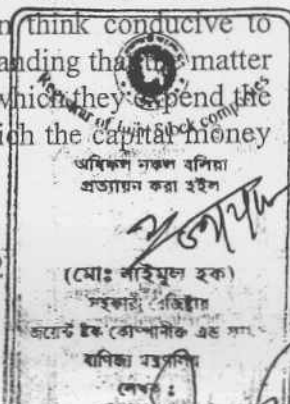 think conducive to
anding that the matter
which they expend the
ch the capital money
Registrar of Joint Stock Companies
অবিকল নকল বলিয়া
প্রত্যায়ন করা হইল
(মোঃ নাইমুল হক)
সহকারী রেজিষ্ট্রার
জয়েন্ট ষ্টক কোম্পানীজ এন্ড
বাণিজ্য মন্ত্রণালয়